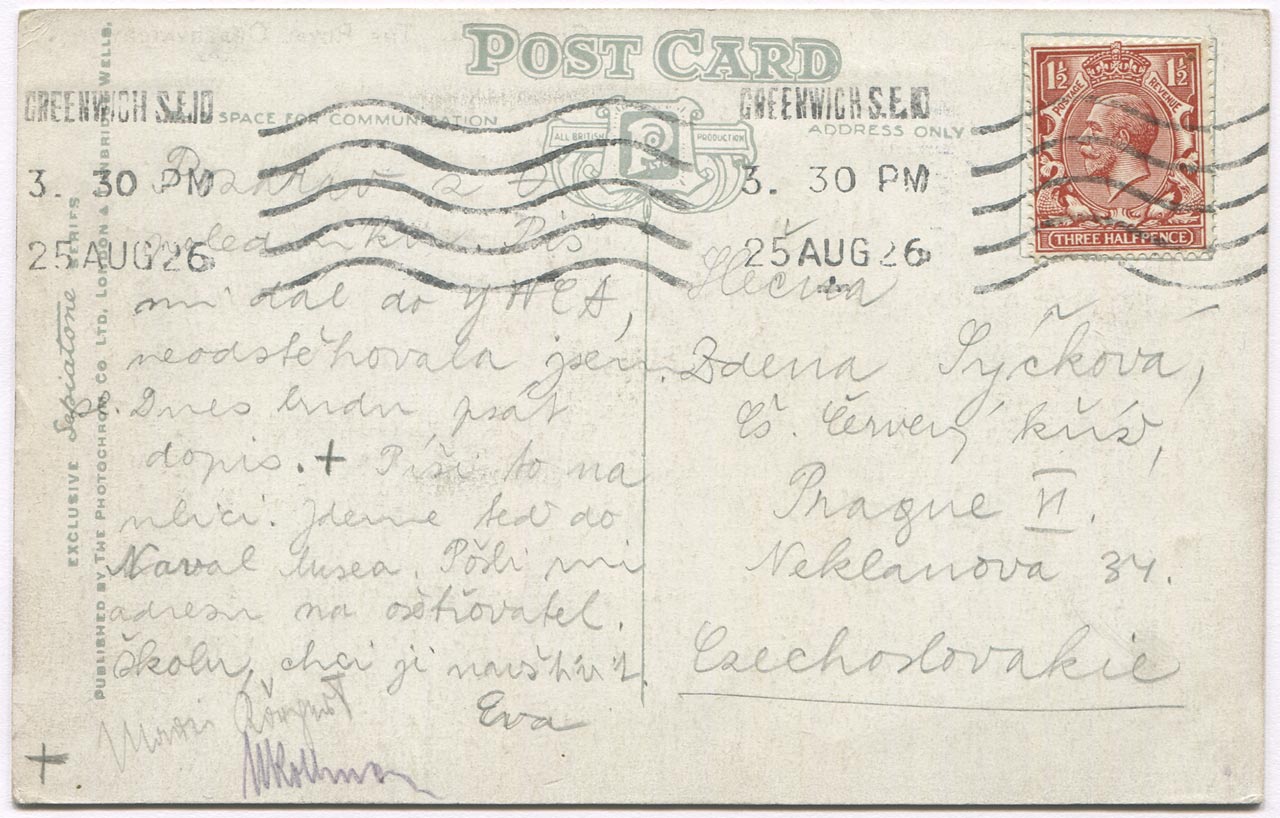 POST CARD
GREENWICH S.E.10
3. 30 PM
25 AUG 26
GREENWICH S.E.10
3. 30 PM
25 AUG 26
SPACE FOR COMMUNICATION
ALL BRITISH PRODUCTION
ADDRESS ONLY
1½ 1½
POSTAGE REVENUE
THREE HALFPENCE
EXCLUSIVE Sepiatone SERIES
PUBLISHED BY THE PHOTOCHROM CO LTD, LONDON & TUNBRIDGE WELLS.
Pozdrav z
Piš
mi dál do YWCA,
neodstěhovala jsem
se. Dnes budu psát
dopis. + Píši to na
ulici. Jdeme teď do
Naval Musea. Pošli mi
adresu na ošetřovatel.
školu, chci ji navštívit.
Eva
Slečna
Zdena Sýčkova,
Čs. Červený kříž,
Prague VI.
Neklanova 34.
Czechoslovakie
+